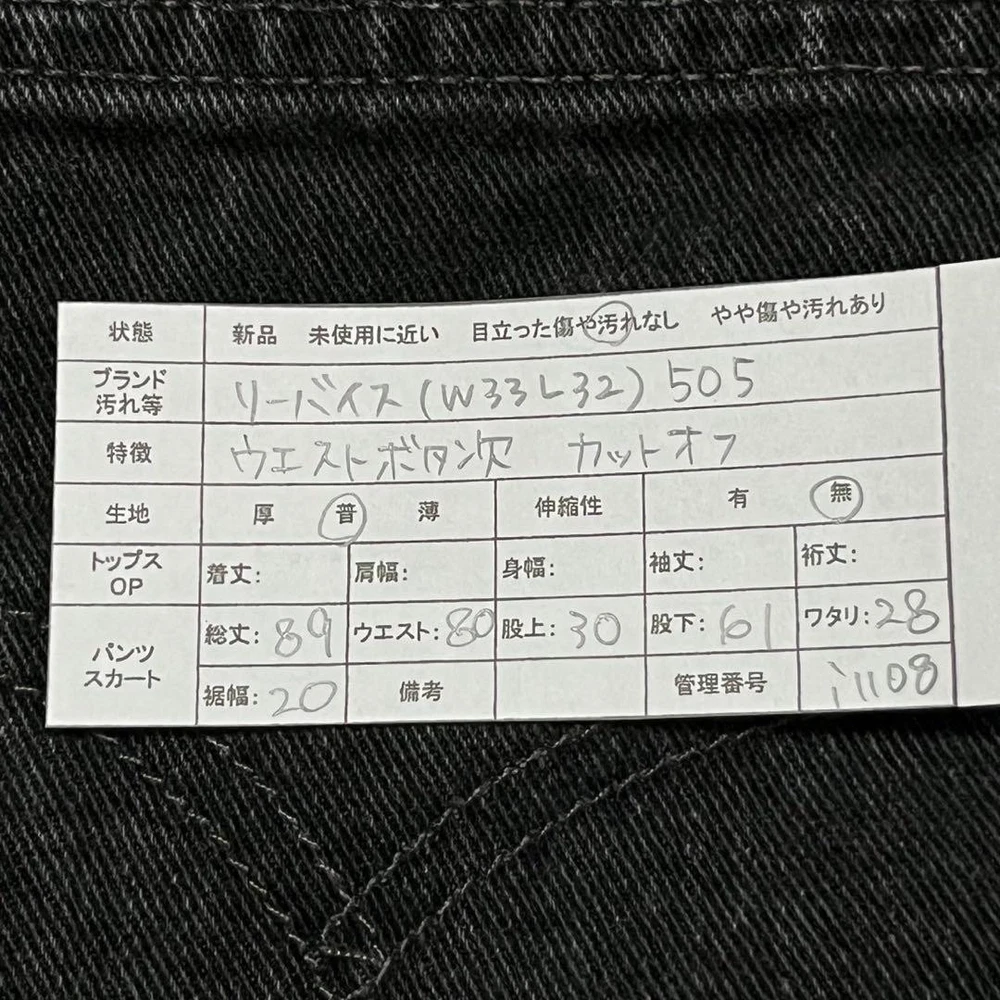 状態 新品 未使用に近い 目立った傷や汚れなし やや傷や汚れあり
ブランド
汚れ等 リーバイス (W33L32) 505
特徴 ウエストボタン欠 カットオフ
生地 厚 普 薄 伸縮性 有 無
トップス
OP 着丈: 肩幅: 身幅: 袖丈: 裄丈:
パンツ
スカート 総丈: 89 ウエスト: 80 股上: 30 股下: 61 ワタリ: 28
裾幅: 20 備考 管理番号 i1108